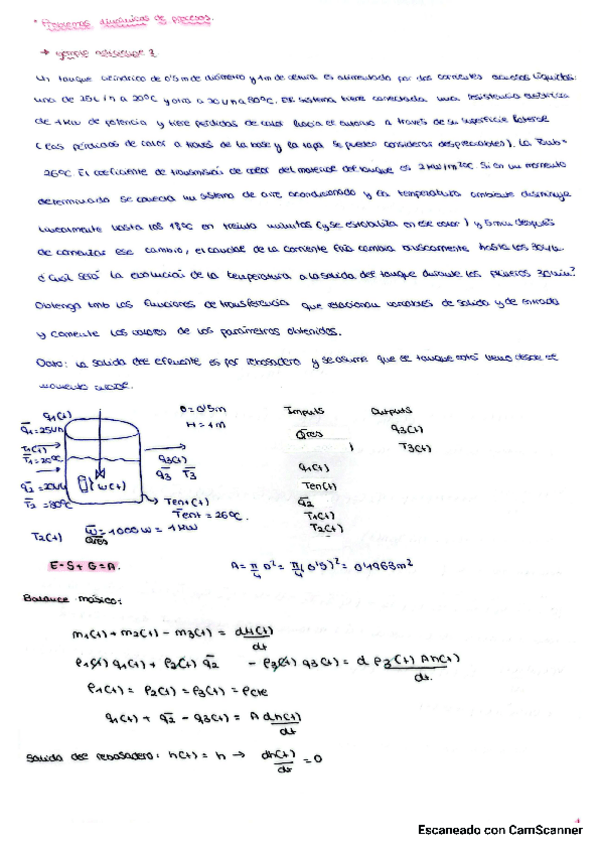 * Problemas dinámicas de procesos.
→ ejemplo
Un tanque cilíndrico de 0'5m de diámetro y 1m de altura es alimentado por dos corrientes acuosas líquidas:
una de 25L/h a 20ºC y otra a 20L/h a 80ºC. El sistema tiene conectada una resistencia eléctrica
de 1kW de potencia y tiene pérdidas de calor hacia el entorno a través de su superficie lateral
(las pérdidas de calor a través de la base y la tapa se pueden considerar despreciables). La
26ºC. El coeficiente de transmisión de calor del material del tanque es 2 kW/m²ºC. Si en un momento
determinado se conecta un sistema de aire acondicionado y la temperatura ambiente disminuye
linealmente hasta los 18ºC en treinta minutos (y se estabiliza en ese valor) y 5min después
de comenzar ese cambio, el caudal de la corriente fría cambia bruscamente hasta los 30L/h
¿Cuál será la evolución de la temperatura a la salida del tanque durante los primeros 30min?
Obtenga tmb las funciones de transferencia que relacionan variables de salida y de entrada
y comente los valores de los parámetros obtenidos.
Dato: la salida del efluente es por rebosadero y se asume que el tanque está lleno desde el
momento
q1(t)
q̅1=25L/h
T1(t)
T̅1=20ºC
q̅2=20L/h
T̅2=80ºC
T2(t)
w(t)
q3(t)
q̅3 T̅3
Tent(t)
T̅ent=26ºC.
w̅=1000w=1kW
Qres
D=0'5m
H=1m
Inputs
Qres
q1(t)
Tent(t)
q̅2
T1(t)
T2(t)
Outputs
q3(t)
T3(t)
E-S+G=A.
A= π/4 D²= π/4(0'5)²= 0'1963m²
Balance másico:
m1(t)+m2(t)-m3(t) = dM(t)/dt
ρ1(t) q1(t)+ ρ2(t) q̅2 - ρ3(t) q3(t)= d ρ3(t) Ah(t)/dt.
ρ1(t)= ρ2(t)= ρ3(t)= ρcte
q1(t)+ q̅2 - q3(t)= A dh(t)/dt
Salida del rebosadero: h(t)=h → dh(t)/dt =0
Escaneado con CamScanner